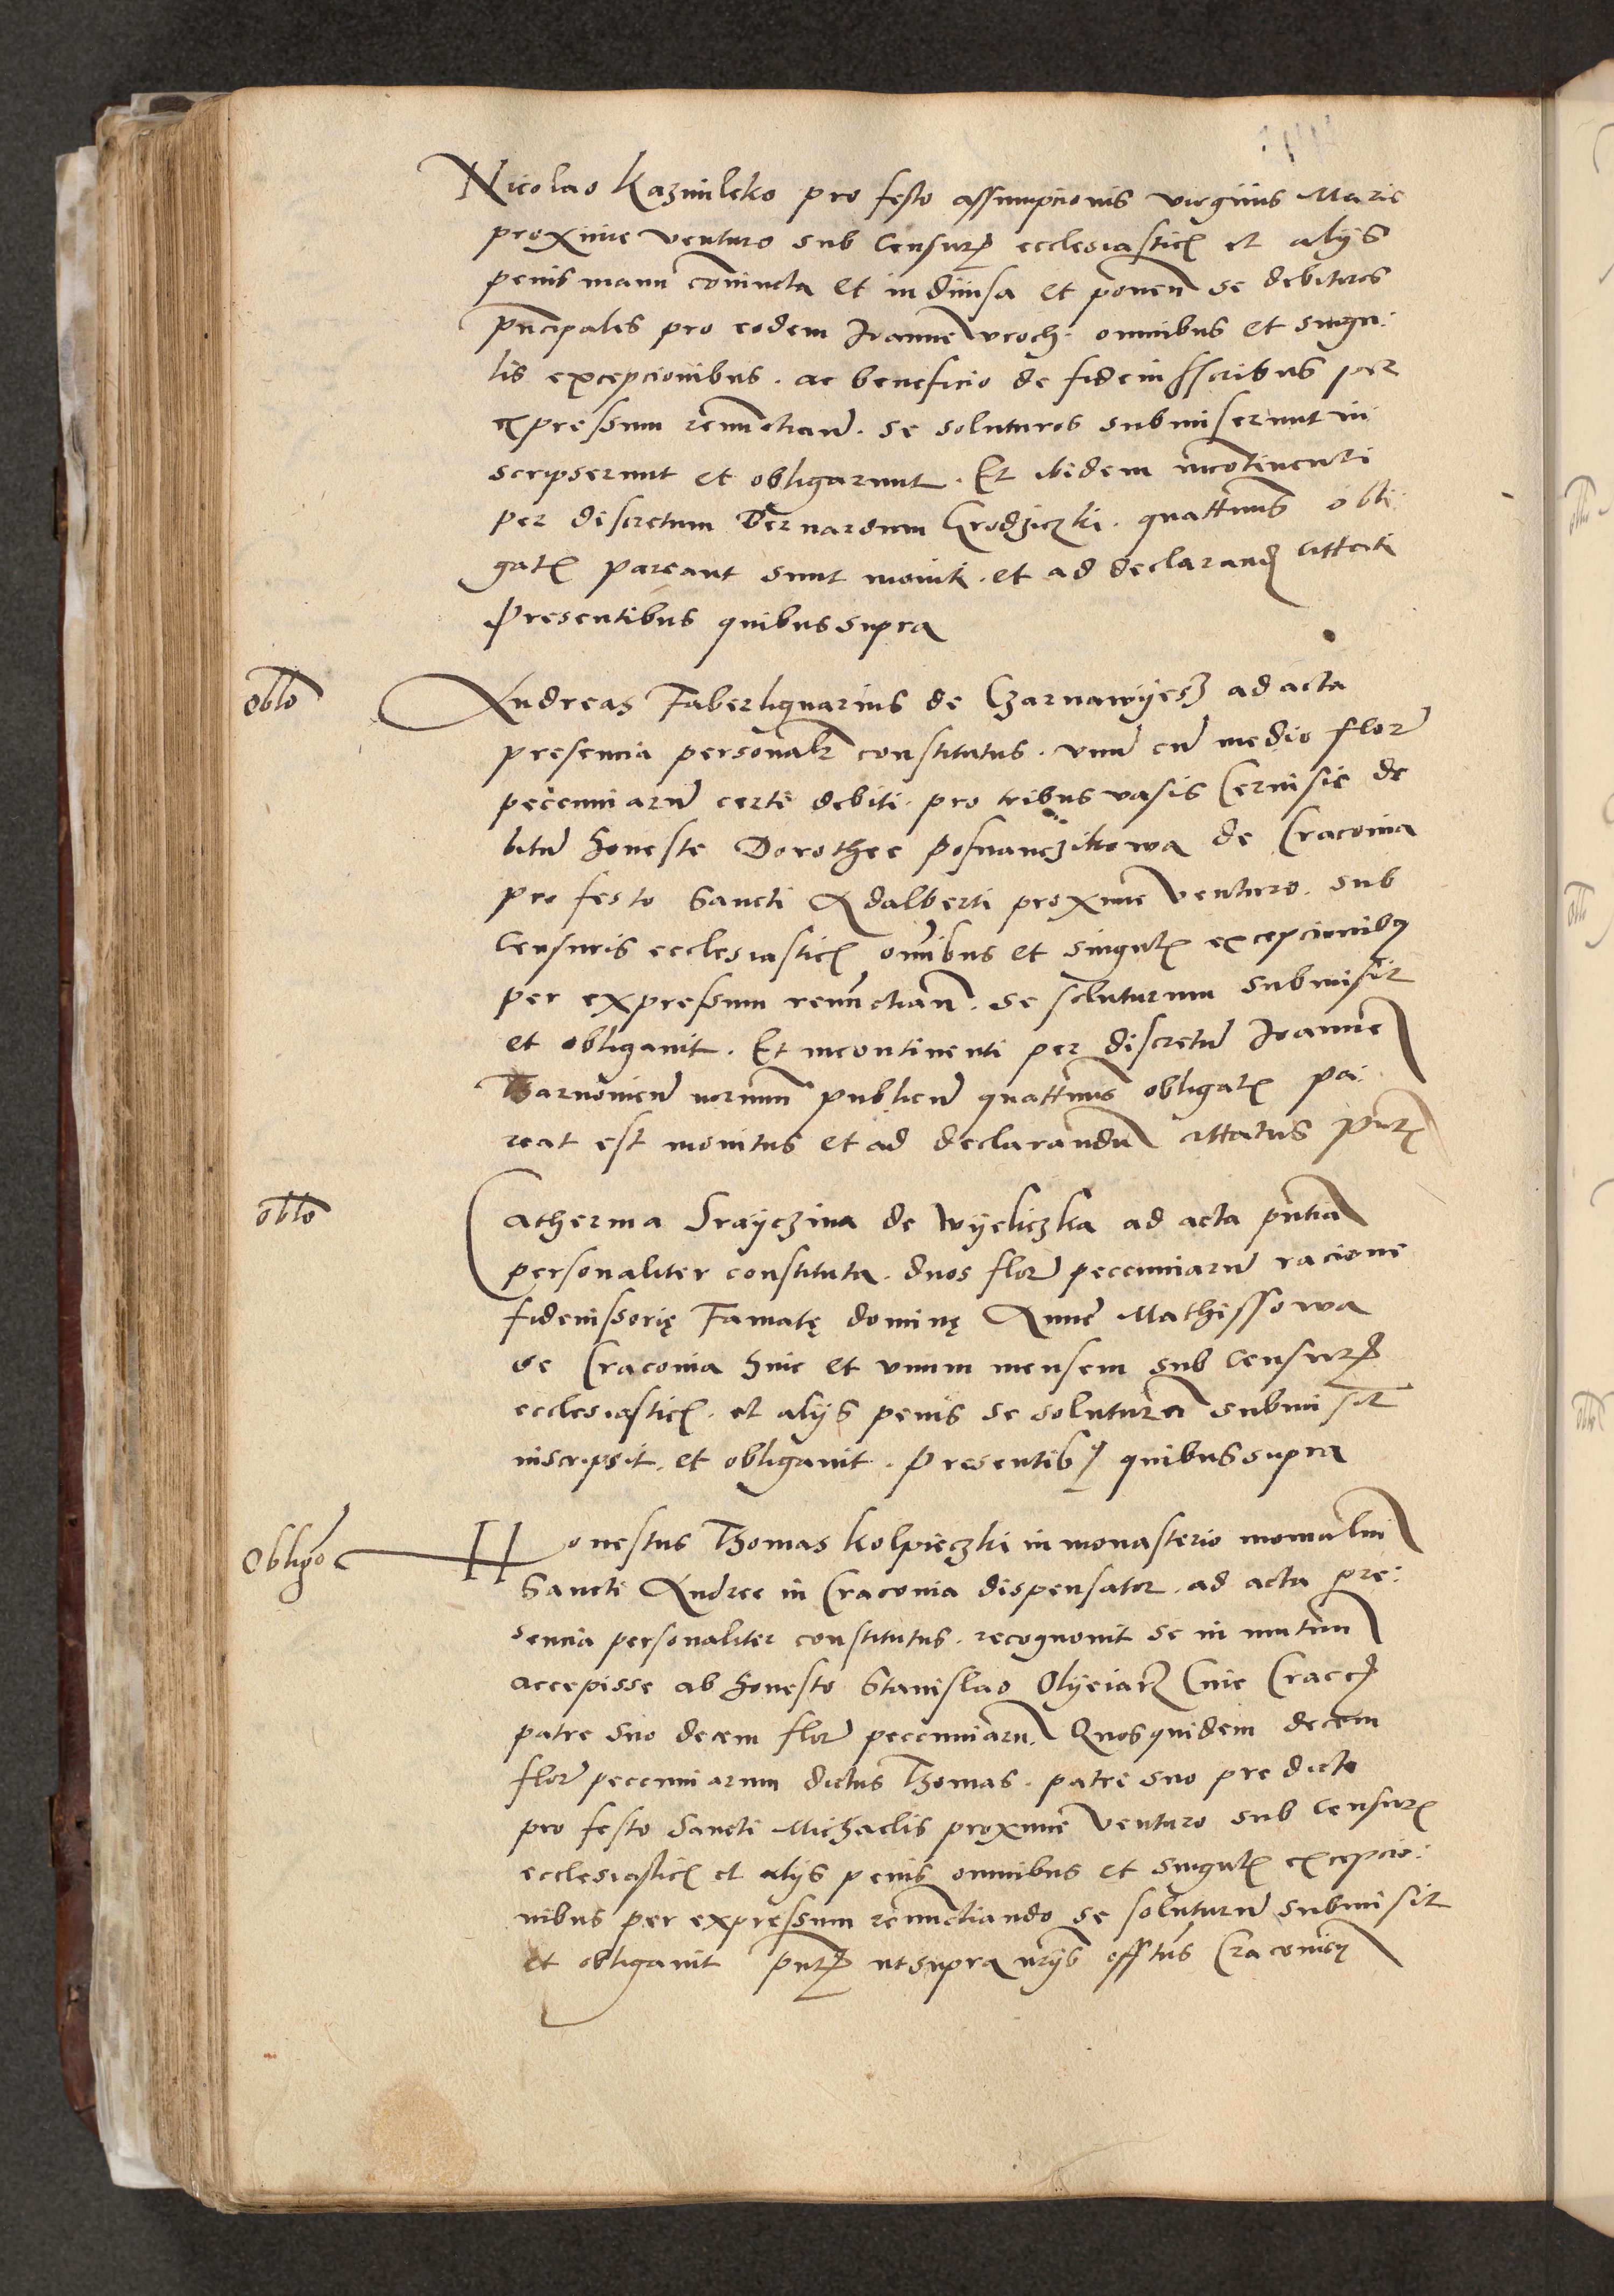 Nicolao Kazimleko pro festo assumpcionis virginis Marie
proxime venturo sub Censuris ecclesiasticis et alijs
penis manu coniuncta et indiuisa et ponen se debitores
pncipales pro eodem Ioanne vroch. omnibus et singu:
lis excepcionibus. ac beneficio de fideiussoribus per
expressum renunctian. se soluturos submiserunt in
scripserunt et obligarunt. Et ibidem incotinenti
per discretum Bernardum Grodziczki. quattenus obli
gatis pareant sunt moniti. et ad declarand cittati
Presentibus quibus supra
oblo
Andreas Faberliquarius de Czarnawyesz ad acta
presencia personalr constitutus. vnu cu medio flor
pecenniaru certi debiti. pro tribus vasis Ceruisie de
bitu honeste Dorothee posnanczikowa de Craconia
pro festo Sancti Adalberti proxime venturo. sub
Censuris ecclesiasticis omibus et singulis excepcionibus
per expressum renunctian. se soluturum submisit
et obligauit. Et incontinenti per discretu Ioanne
Tharnouien notarium publicu quattenus obligatis pa:
reat est monitus et ad declarandu cittatus pntis
oblo
Catherina Srayczina de Wyeliczka ad acta pntia
personaliter constituta. duos flor pecenniaru racione
fideiussorię Famatę dominę Anne Mathissowa
de Craconia hinc et vnum mensem sub Censuris
ecclesiasticis. et alijs penis se soluturа submisit
inscripsit. et obligauit. Presentibus quibus supra
Obligo
Honestus Thomas Kolpieczki in monasterio monialiu
Sancti Andree in Craconia dispensator. ad acta pre:
sencia personaliter constitutus. recognouit se in mutuu
accepisse ab honesto Stanislao Olyeiarz Ciue Cracc
patre suo decem flor pecenniaru. Quosquidem decem
flor pecenniarum dictus Thomas. patri suo predicto
pro festo Sancti Michaelis proxime venturo sub censuris
ecclesiasticis et alijs penis omnibus et singulis excepcio:
nibus per expressum renunctiando se soluturu submisit
et obligauit pntis ut supra Craconien